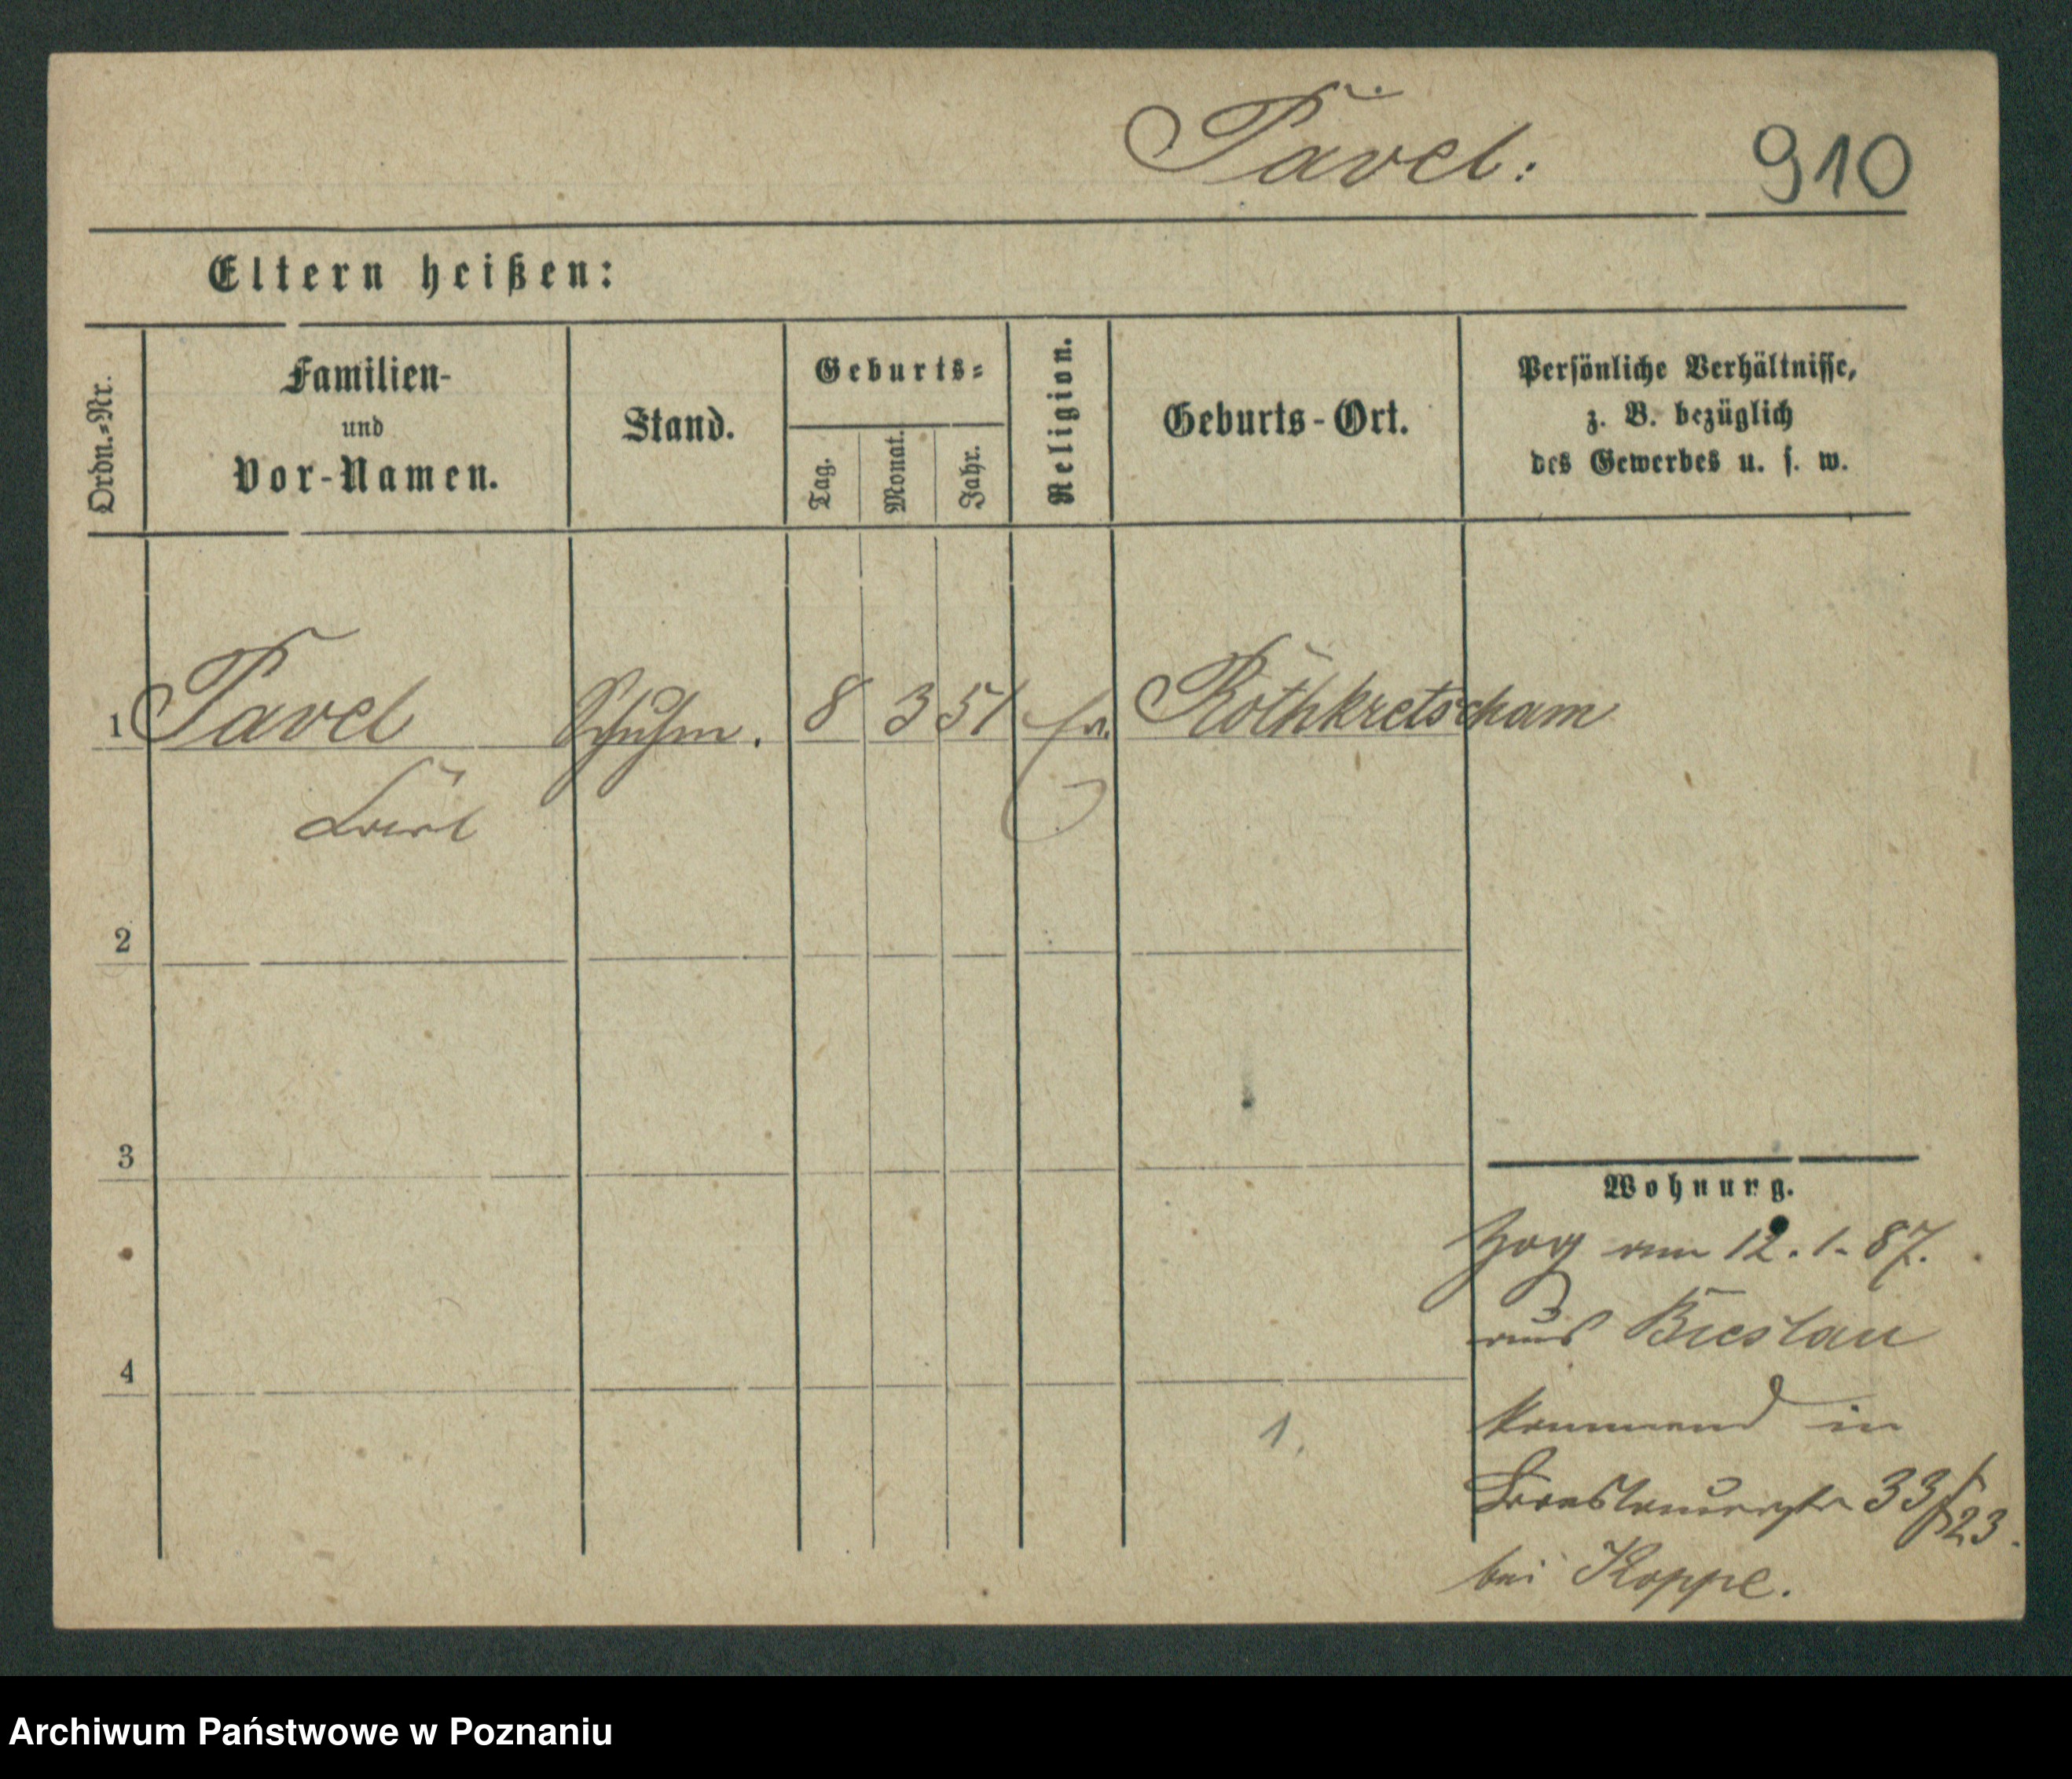 Pavel.
910
Eltern heißen:
Ordn.=Nr.
Familien-
und
Vor-Namen.
Stand.
Geburts=
Tag.
Monat.
Jahr.
Religion.
Geburts-Ort.
Persönliche Verhältnisse,
z. B. bezüglich
des Gewerbes u. s. w.
1 Pavel Schuhm. 8 3 51 Rothkretscham
2
3
4
Wohnung.
Zog am 12.1.87.
aus Breslau
kommend in
33/23.
bei Koppe.
1.
Archiwum Państwowe w Poznaniu